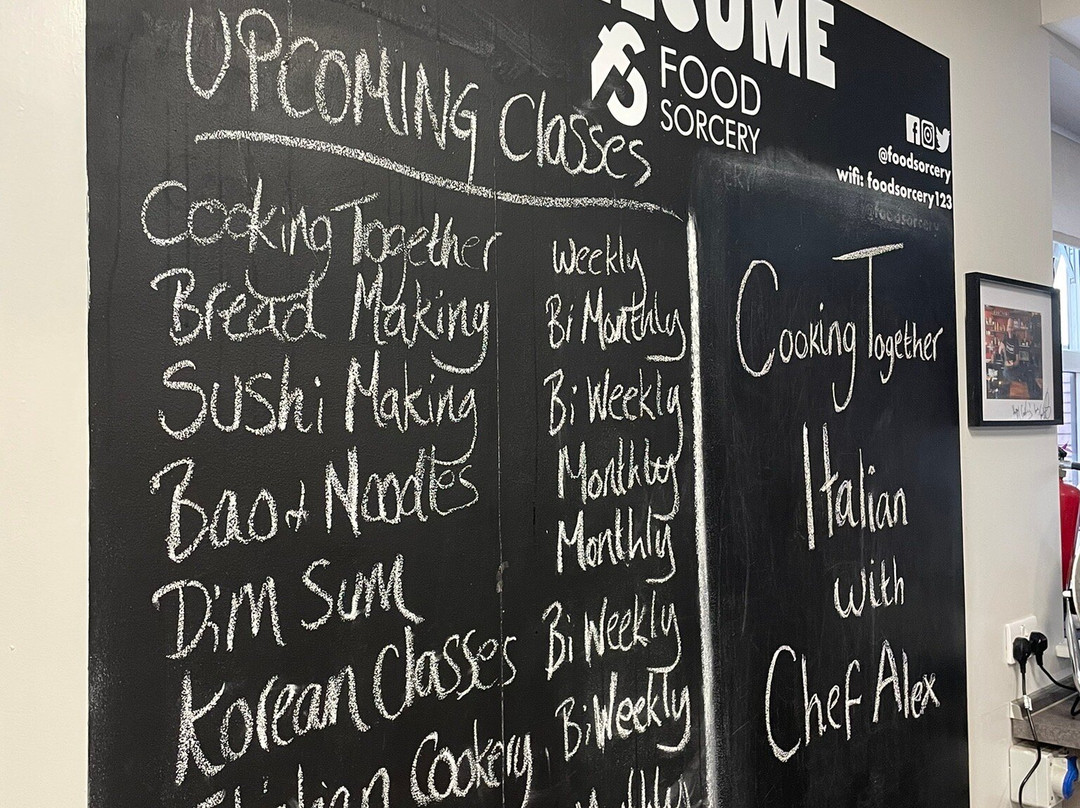 UPCOMING Classes
Cooking Together Weekly
Bread Making Bi Monthly
Sushi Making Bi Weekly
Bao + Noodles Monthly
Dim Sum Monthly
Korean Classes Bi Weekly
Cookery BiWeekly
Monthly
FOOD
SORCERY
@foodsorcery
wifi: foodsorcery123
@foodsorcery
Cooking Together
Italian
with
Chef Alex